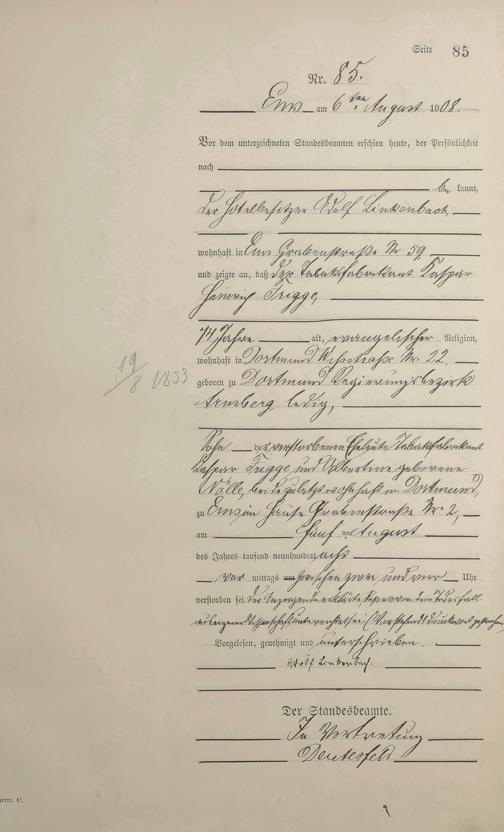 Seite 85
Nr. 85.
Ems am 6ten August 1908.
Vor dem unterzeichneten Standesbeamten erschien heute, der Persönlichkeit
nach
be kannt,
der Hotelbesitzer Adolf Linkenbach,
wohnhaft in Ems Grabenstraße Nr. 59
und zeigte an, daß der Tabakfabrikant Kaspar
Heinrich Trigge,
74 Jahre alt, evangelischer Religion,
wohnhaft in Dortmund Nr. 22,
geboren zu Dortmund Regierungsbezirk
Arnsberg ledig,
19/8 1833
Sohn der verstorbenen Eheleute Tabakfabrikant
Kaspar Trigge und Albertine geborene
Nölle, beide zuletzt wohnhaft in Dortmund,
zu Ems im Hause Grabenstraße Nr. 2,
am fünften August
des Jahres tausend neunhundert acht
vor mittags zwischen zwei und vier Uhr
verstorben sei. Der Anzeigende erklärte, daß er von dem Todesfall
aus eigener Wissenschaft unterrichtet sei. (Vorstehend 1 Druckwort gestrichen
Vorgelesen, genehmigt und unterschrieben.
Adolf Linkenbach.
Der Standesbeamte.
In Vertretung